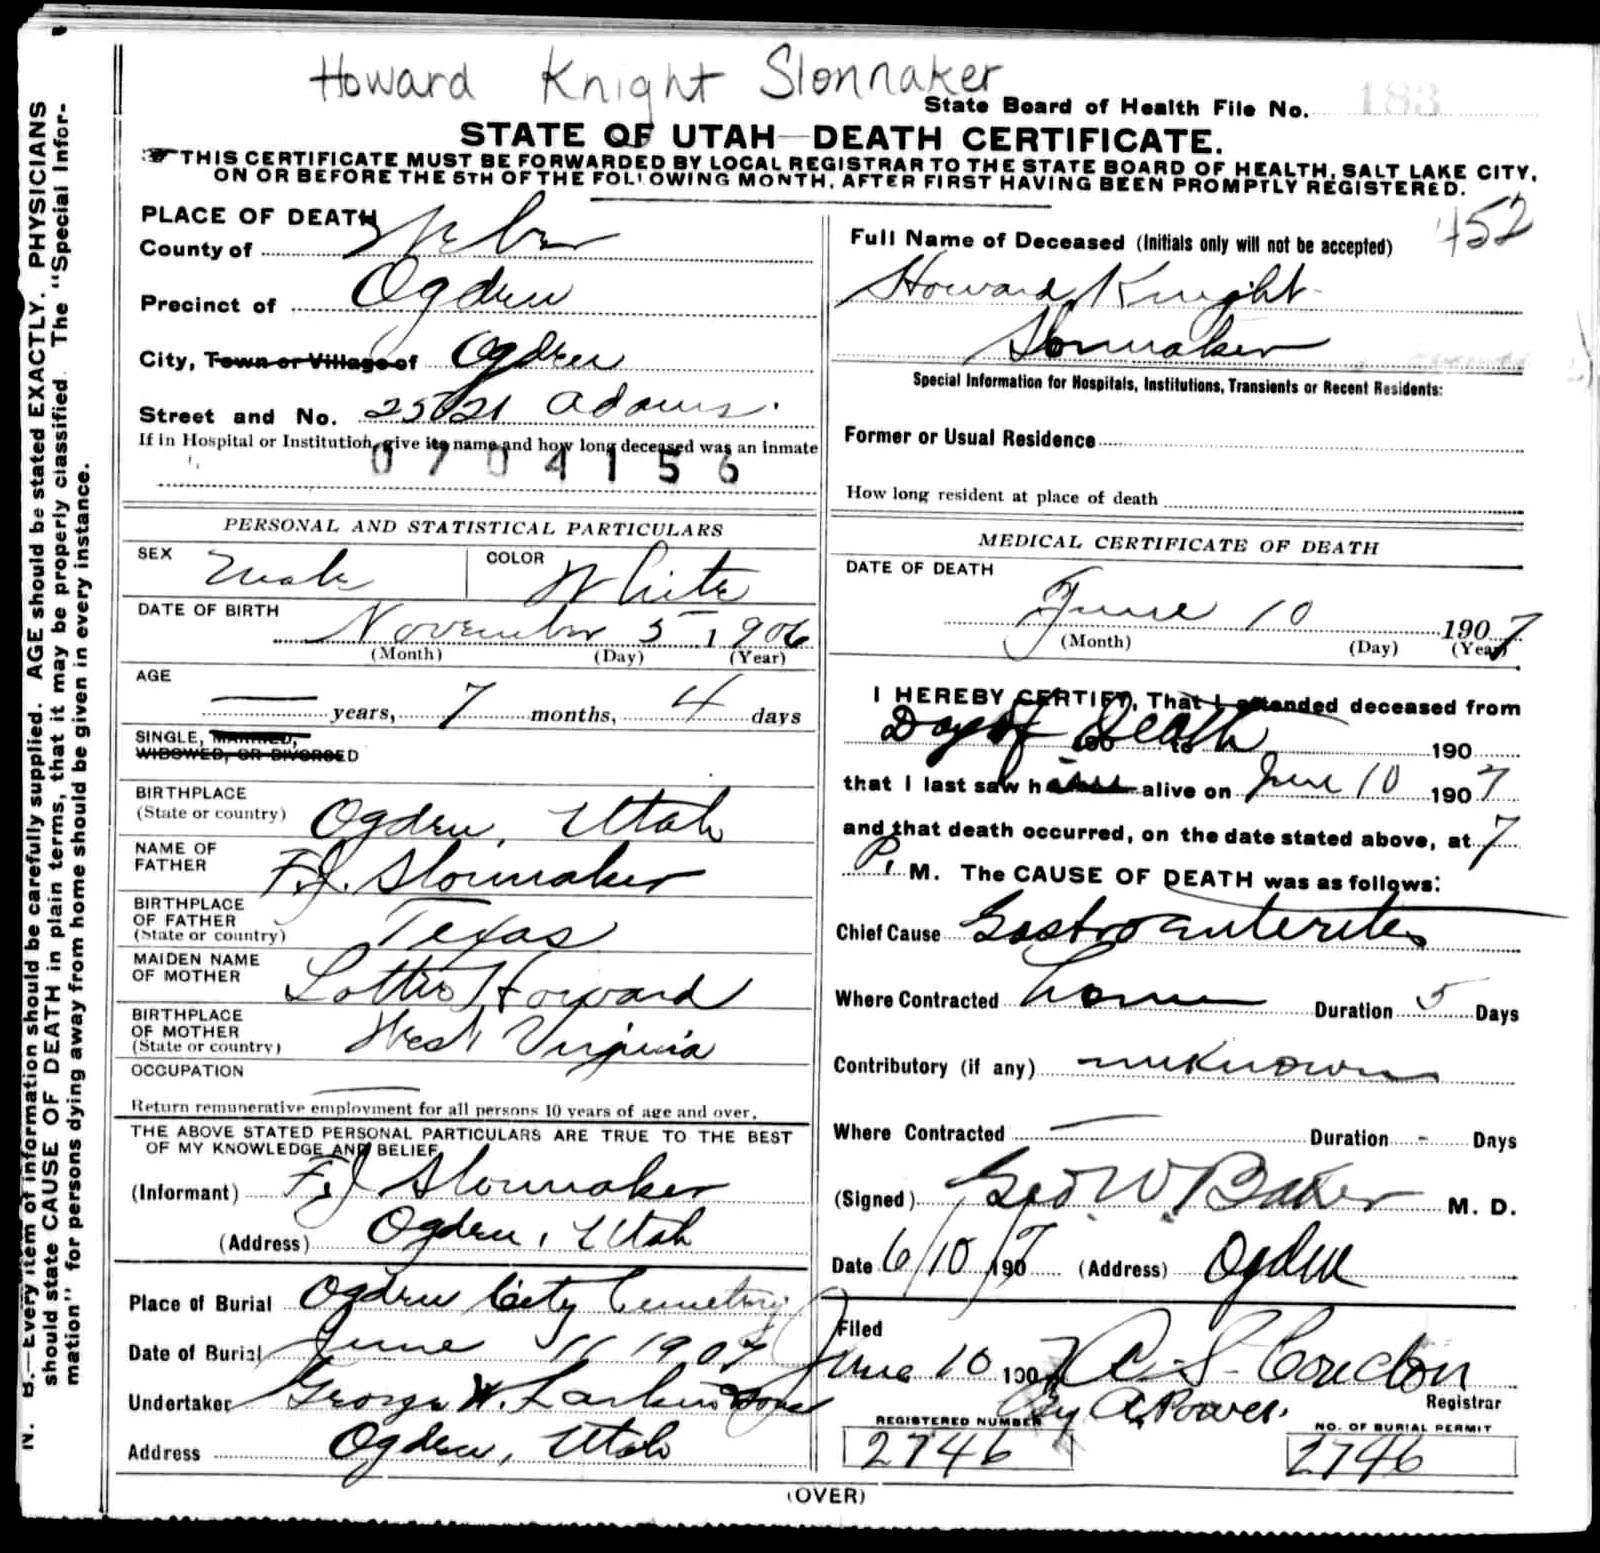 Howard Knight Slonnaker
State Board of Health File No. 183
STATE OF UTAH—DEATH CERTIFICATE.
THIS CERTIFICATE MUST BE FORWARDED BY LOCAL REGISTRAR TO THE STATE BOARD OF HEALTH, SALT LAKE CITY,
ON OR BEFORE THE 5TH OF THE FOLLOWING MONTH, AFTER FIRST HAVING BEEN PROMPTLY REGISTERED.
N. B.—Every item of information should be carefully supplied. AGE should be stated EXACTLY. PHYSICIANS
should state CAUSE OF DEATH in plain terms, that it may be properly classified. The "Special Infor-
mation" for persons dying away from home should be given in every instance.
PLACE OF DEATH
County of Weber
Precinct of Ogden
City, Town or Village of Ogden
Street and No. 2521 Adams.
If in Hospital or Institution, give its name and how long deceased was an inmate
0704156
452
Full Name of Deceased (Initials only will not be accepted)
Howard Knight
Slonnaker
Special Information for Hospitals, Institutions, Transients or Recent Residents:
Former or Usual Residence
How long resident at place of death
PERSONAL AND STATISTICAL PARTICULARS
SEX Male COLOR White
DATE OF BIRTH
November 5 1906
(Month) (Day) (Year)
AGE
— years, 7 months, 4 days
SINGLE, MARRIED,
WIDOWED, OR DIVORCED
BIRTHPLACE
(State or country) Ogden, Utah
NAME OF
FATHER F.J. Slonnaker
BIRTHPLACE
OF FATHER
(State or country) Texas
MAIDEN NAME
OF MOTHER Lottie Howard
BIRTHPLACE
OF MOTHER
(State or country) West Virginia
OCCUPATION —
Return remunerative employment for all persons 10 years of age and over.
THE ABOVE STATED PERSONAL PARTICULARS ARE TRUE TO THE BEST
OF MY KNOWLEDGE AND BELIEF
(Informant) F.J. Slonnaker
(Address) Ogden, Utah
Place of Burial Ogden City Cemetery
Date of Burial June 11 1907
Undertaker George W. Larkin & Sons
Address Ogden, Utah
MEDICAL CERTIFICATE OF DEATH
DATE OF DEATH
June 10 1907
(Month) (Day) (Year)
I HEREBY CERTIFY, That I attended deceased from
Day of Death 190
that I last saw h alive on June 10 1907
and that death occurred, on the date stated above, at 7
P. M. The CAUSE OF DEATH was as follows:
Chief Cause Gastroenterites
Where Contracted home Duration 5 Days
Contributory (if any) unknown
Where Contracted — Duration - Days
(Signed) Geo. W. Baker M. D.
Date 6/10/1907 (Address) Ogden
Filed
June 10 1907 A. S. Condon
By A. Power. Registrar
REGISTERED NUMBER
2746
NO. OF BURIAL PERMIT
2746
(OVER)